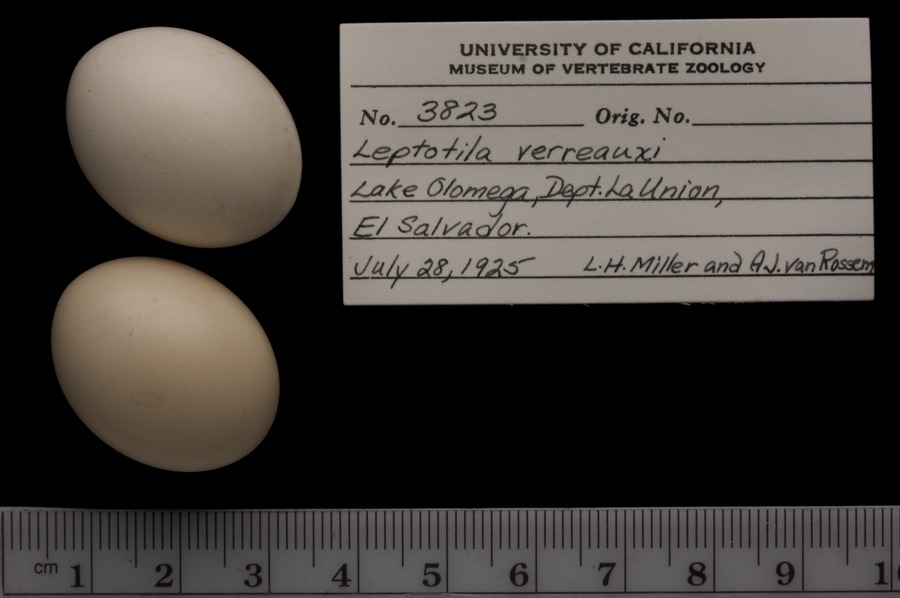 UNIVERSITY OF CALIFORNIA
MUSEUM OF VERTEBRATE ZOOLOGY
No. 3823 Orig. No.
Leptotila verreauxi
Lake Olomega, Dept. La Union,
El Salvador.
July 28, 1925 L.H. Miller and A.J. van Rossem
cm 1 2 3 4 5 6 7 8 9 1